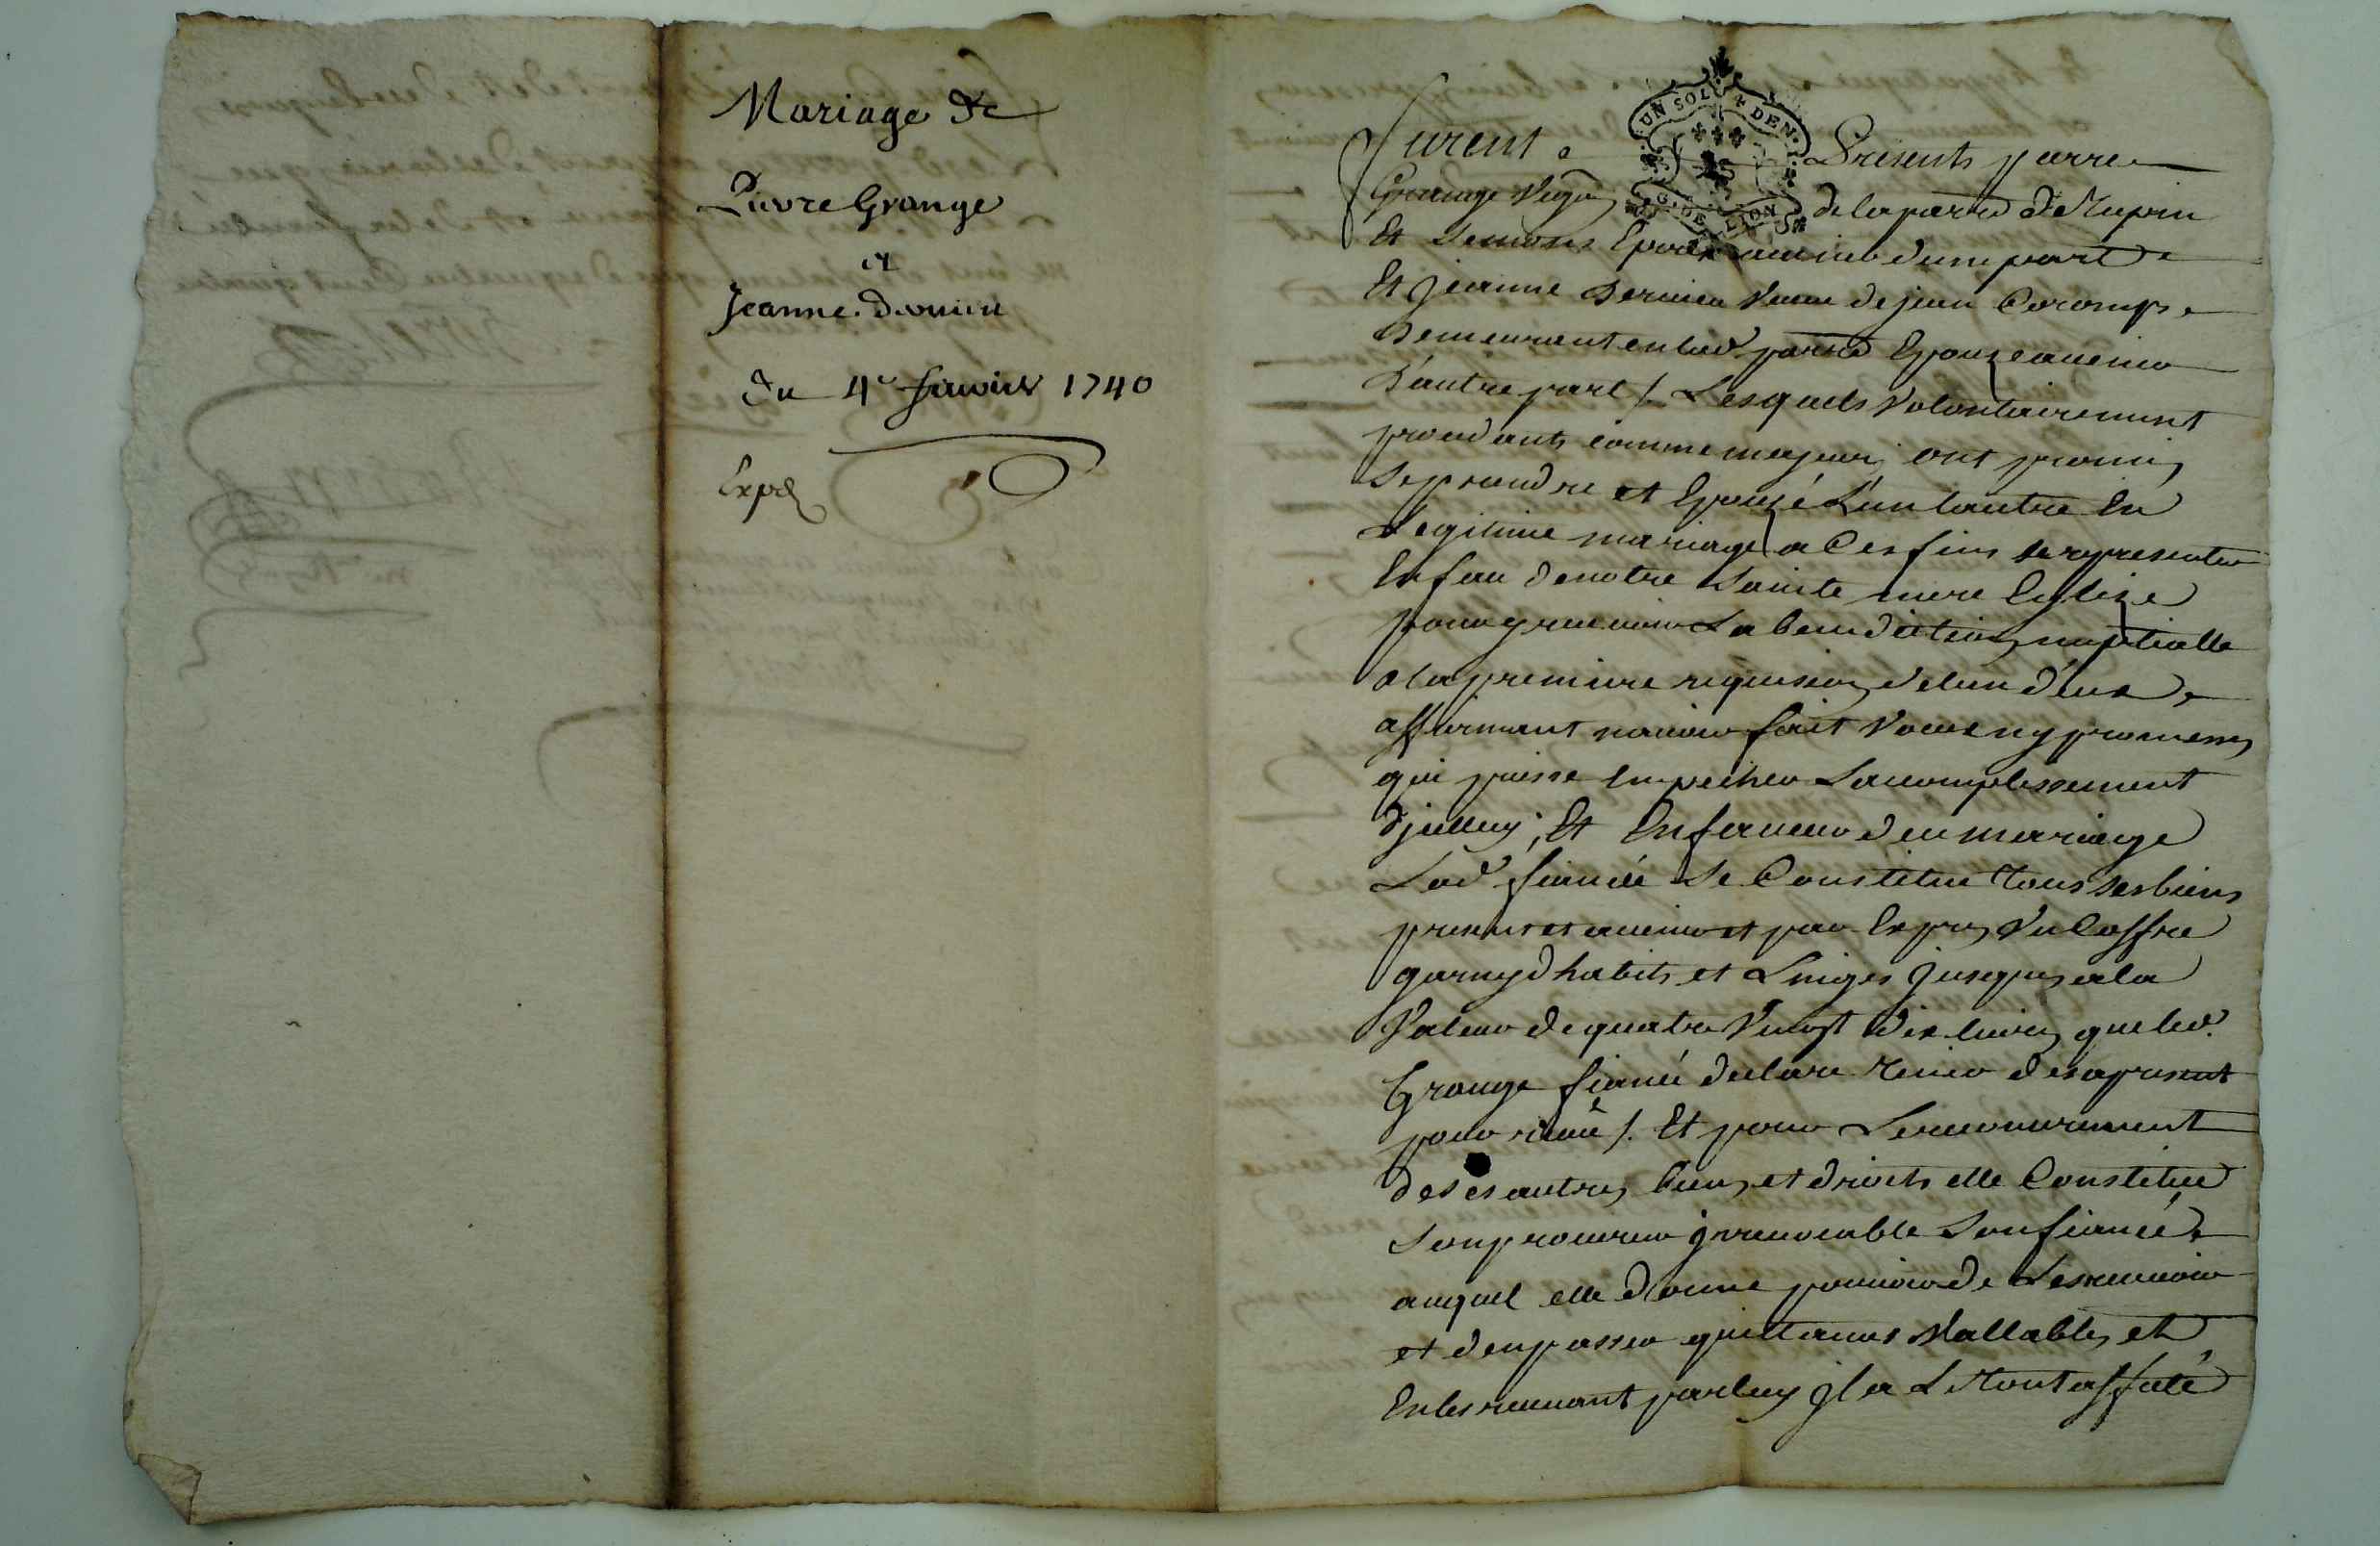 Mariage de
Pierre Grange
et
Jeanne dervieu
du 4e janvier 1740
Expd
UN SOL 4 DEN.
G. DE LYON
furent Presents pierre
Grange de la parrd de Tupin
Et Semons Epoux avenir dune part
Et jeanne Dervieu veuve de jean Coromp
Demeurant en lad parrd Epouze avenir
D'autre part /. Lesquels volontairement
proced ants comme majeurs ont promis
se prendre et Epouzé L'un lautre En
Legitime mariage a Ces fins se representer
En face de notre Sainte mere Eglize
pour y recevoir La benediction nuptialle
a la premiere requision de lun d'eux
affirmant navoir fait voeux ny promesses
qui puisse Empecher Lacomplissement
d'jcelluy; Et En faveur du mariage
Lad fiancée Se Constitue tous ses biens
presents et avenir et par Exprés Un Coffre
garny d habits et Linges jusques a la
Valeur de quatre Vingt dix livres que led.
Grange fiancé declare tenir des a present
pour receu /. Et pour Le recouvrement
de ses autres biens et droits elle Constitue
son procureur jrrevocable Son fiancé
auquel elle donne pouvoir de Les recevoir
et d en passer quittances Vallables et
En les recevant par luy jl a Le tout affecté